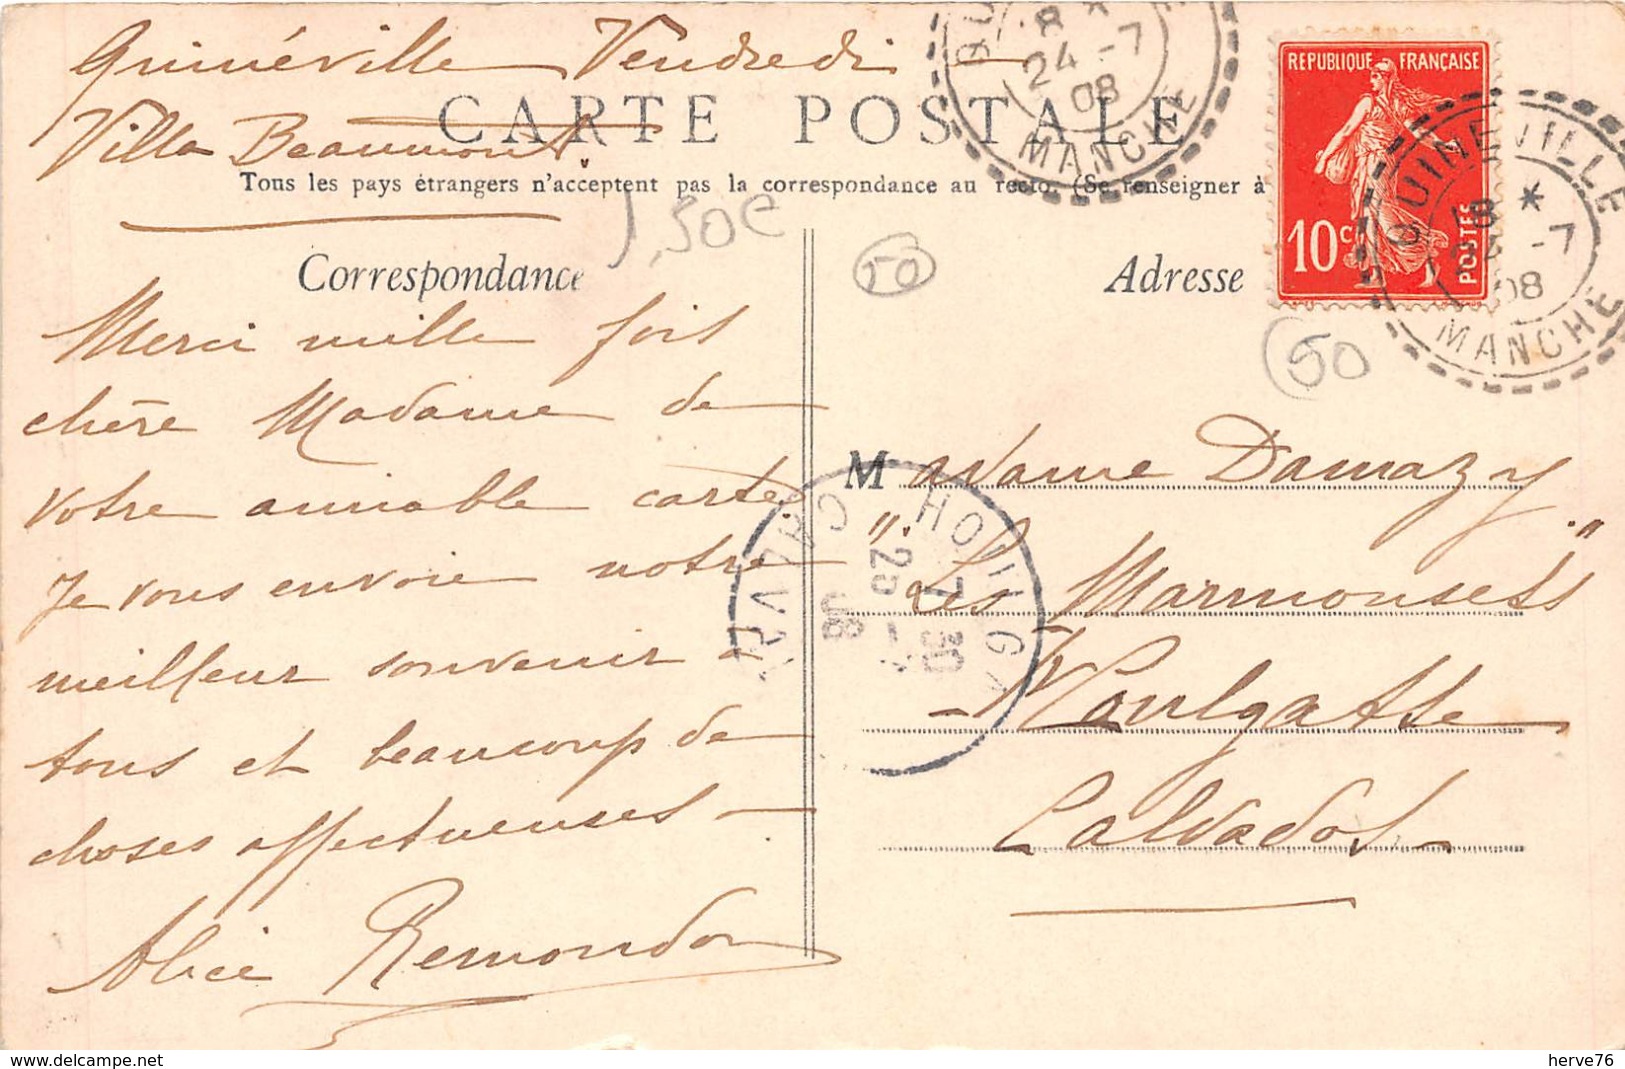 Quinéville Vendredi
Villa Beaumont
CARTE POSTALE
Tous les pays étrangers n'acceptent pas la correspondance au recto. (Se renseigner à
Correspondance
Adresse
Merci mille fois
chère Madame de
votre aimable carte.
Je vous envoie notre
meilleur souvenir à
tous et beaucoup de
choses affectueuses
Alice Remondon
Madame Damazy
"Les Marmousets"
Houlgatte
Calvados
RÉPUBLIQUE FRANÇAISE
10c
POSTES
QUINEVILLE
18 *
23 -7
08
MANCHE
8 *
24 -7
08
MANCHE
HOULGA
7 30
25 -7
08
CALVA
50
50
hervé76